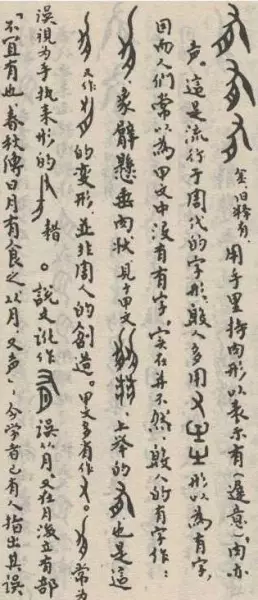 金旧释有,用手里持肉形,以表示有意,肉亦
声。這是流行于周代的字形,殷人多用又㞢㞢形以為有字,
因而人们常以為甲文中没有有字,实在并不然,殷人的有字作:
,象臂懸垂肉状,見于甲文,上举的也是這
又作的变形,並非周人的創造。甲文多有作又。常为
误視为手执耒形的耤。説文訛作误从月,又在月後立有部
「不宜有也,春秋傳曰月有食之从月,又声」,今学者已有人指出其误